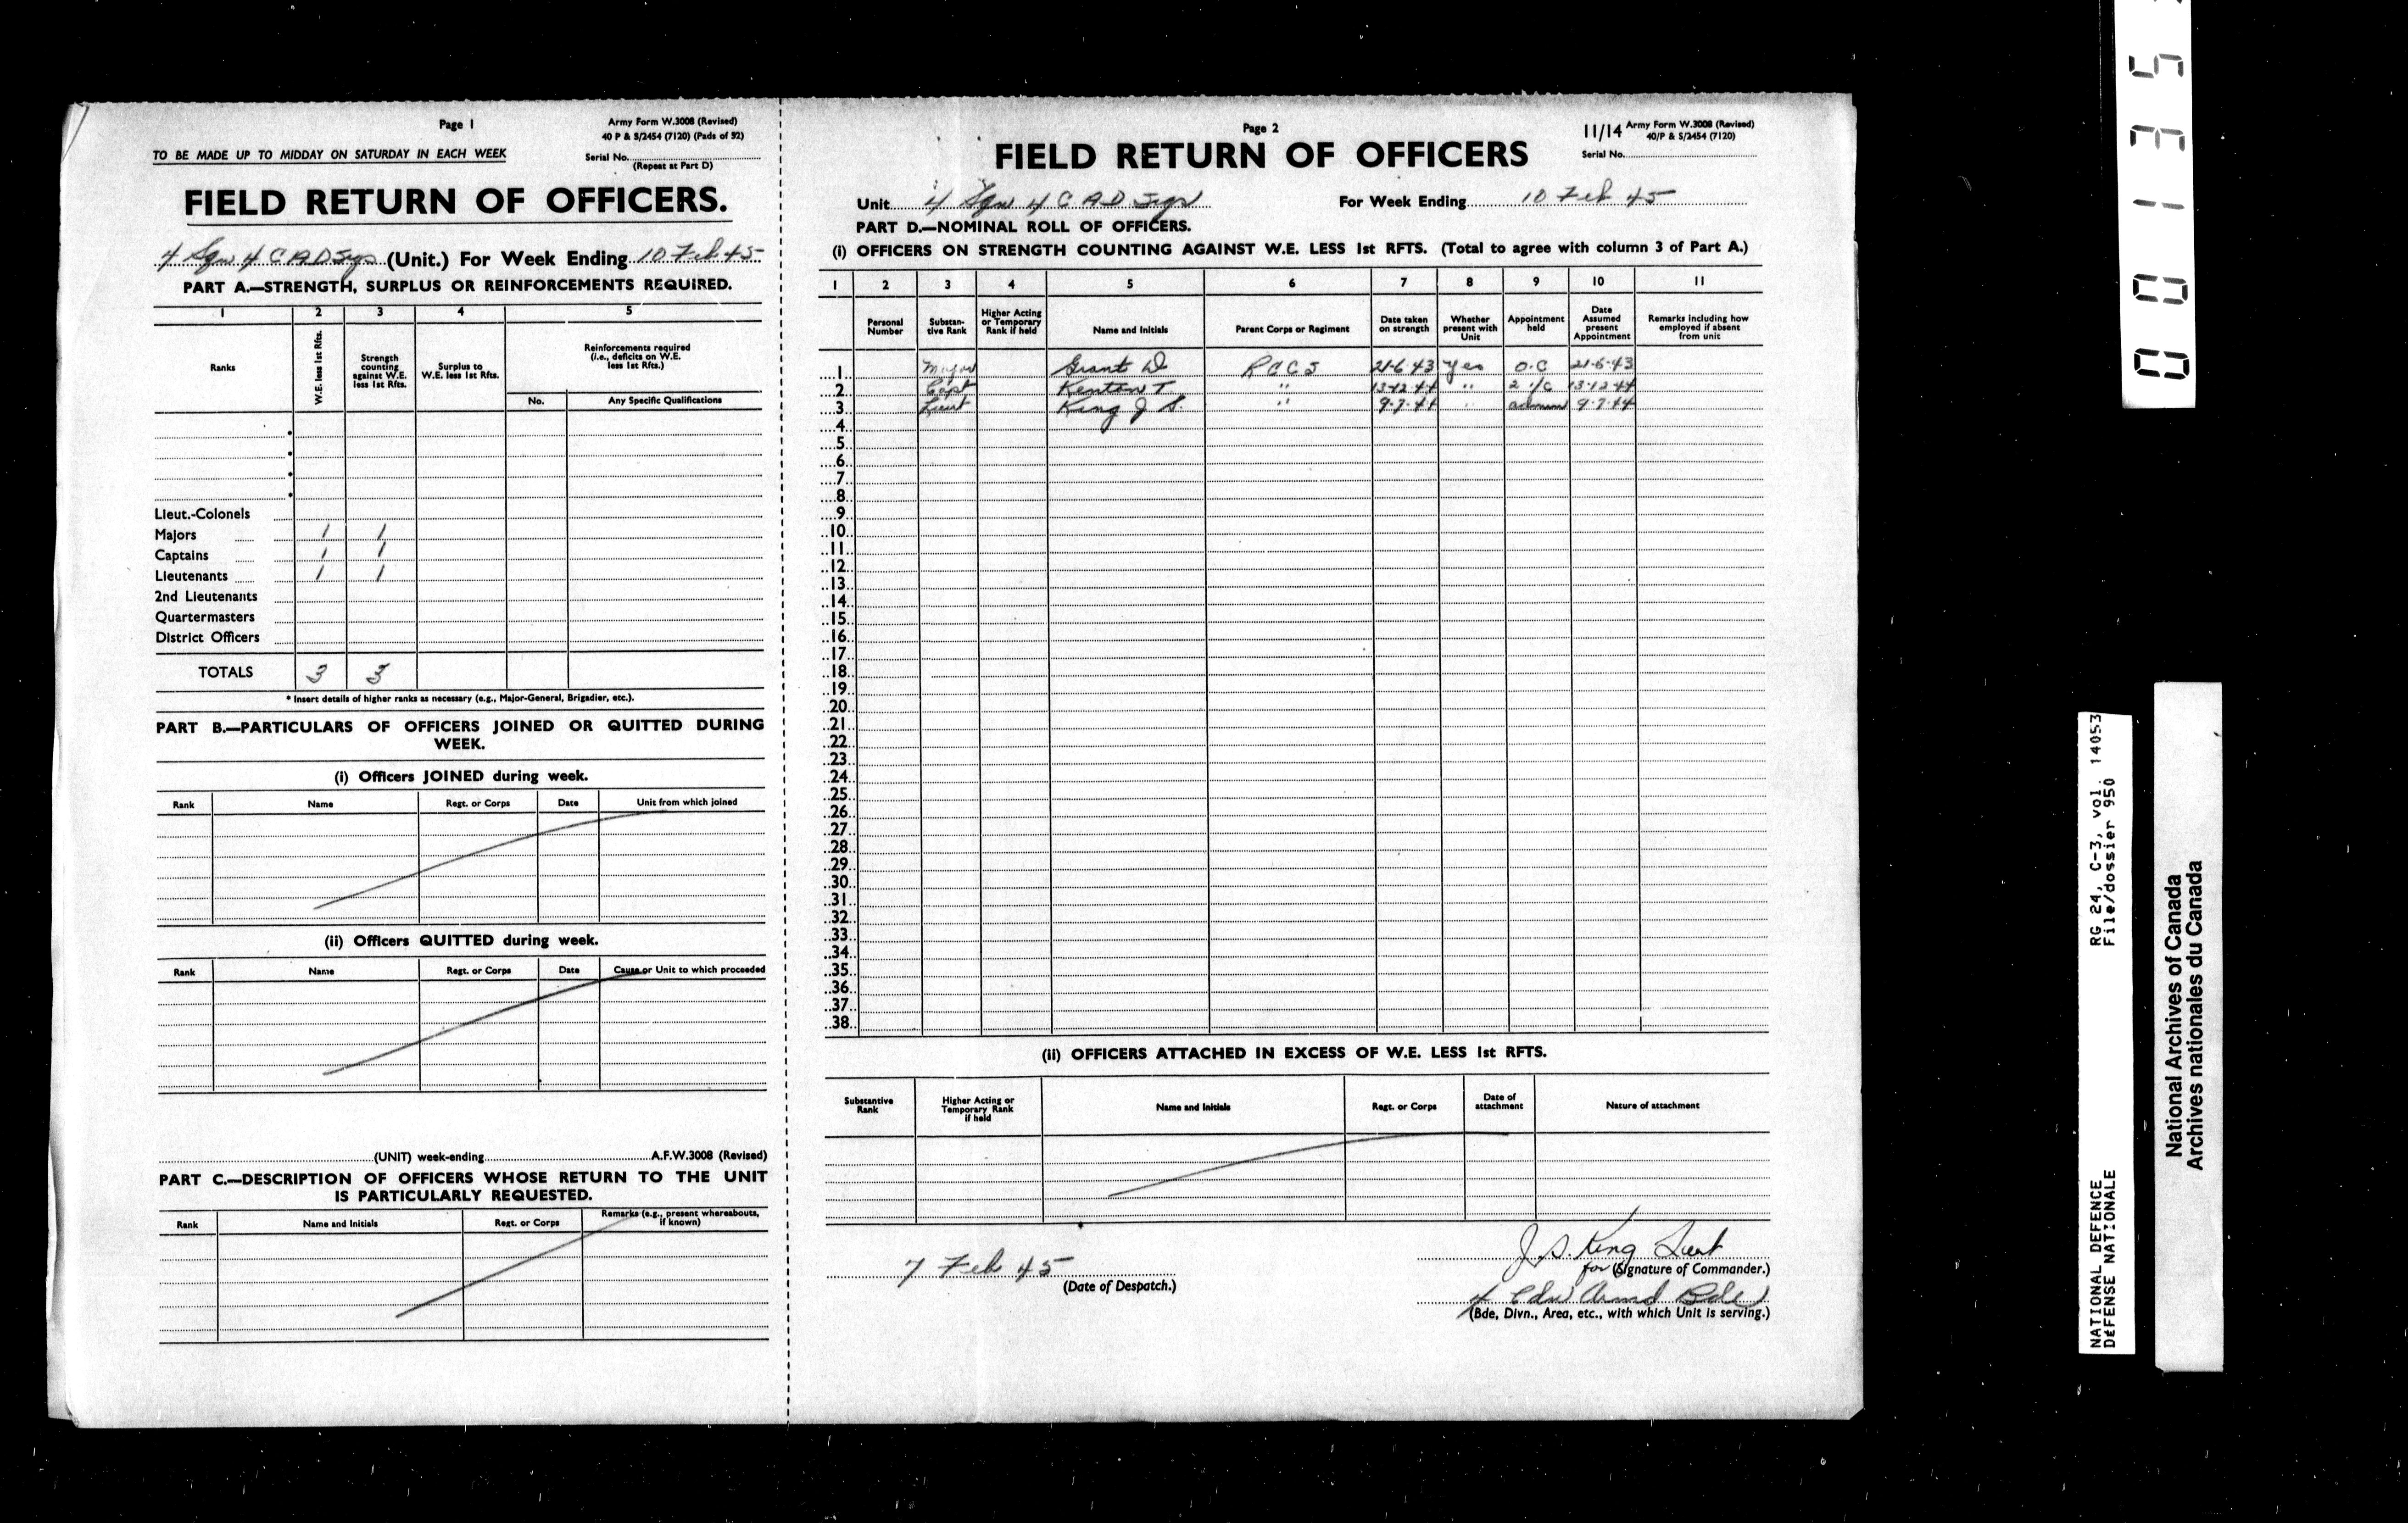 Page 1
Army Form W.3008 (Revised)
40 P & S/2454 (7120) (Pads of 52)
TO BE MADE UP TO MIDDAY ON SATURDAY IN EACH WEEK
Serial No.
(Repeat at Part D)
FIELD RETURN OF OFFICERS.
4 Sqn 4 C A D Sigs (Unit.) For Week Ending 10 Feb 45
PART A.—STRENGTH, SURPLUS OR REINFORCEMENTS REQUIRED.
1 2 3 4 5
Ranks
W.E. less 1st Rfts.
Strength counting against W.E. less 1st Rfts.
Surplus to W.E. less 1st Rfts.
Reinforcements required (i.e., deficits on W.E. less 1st Rfts.)
No. Any Specific Qualifications
Lieut.-Colonels
Majors 1 1
Captains 1 1
Lieutenants 1 1
2nd Lieutenants
Quartermasters
District Officers
TOTALS 3 3
* Insert details of higher ranks as necessary (e.g., Major-General, Brigadier, etc.).
PART B.—PARTICULARS OF OFFICERS JOINED OR QUITTED DURING
WEEK.
(i) Officers JOINED during week.
Rank Name Regt. or Corps Date Unit from which joined
(ii) Officers QUITTED during week.
Rank Name Regt. or Corps Date Cause or Unit to which proceeded
(UNIT) week-ending A.F.W.3008 (Revised)
PART C.—DESCRIPTION OF OFFICERS WHOSE RETURN TO THE UNIT
IS PARTICULARLY REQUESTED.
Rank Name and Initials Regt. or Corps Remarks (e.g., present whereabouts, if known)
Page 2
11/14 Army Form W.3008 (Revised)
40/P & S/2454 (7120)
Serial No.
FIELD RETURN OF OFFICERS
Unit 4 Sqn 4 C A D Sigs For Week Ending 10 Feb 45
PART D.—NOMINAL ROLL OF OFFICERS.
(i) OFFICERS ON STRENGTH COUNTING AGAINST W.E. LESS 1st RFTS. (Total to agree with column 3 of Part A.)
1 2 3 4 5 6 7 8 9 10 11
Personal Number
Substantive Rank
Higher Acting or Temporary Rank if held
Name and Initials
Parent Corps or Regiment
Date taken on strength
Whether present with Unit
Appointment held
Date Assumed present Appointment
Remarks including how employed if absent from unit
1 Major Grant D RCCS 21-6-43 Yes O.C 21-6-43
2 Capt Kenton T " 13-12-44 " 2 i/c 13-12-44
3 Lieut King J S. " 9-7-44 " admin 9-7-44
4
5
6
7
8
9
10
11
12
13
14
15
16
17
18
19
20
21
22
23
24
25
26
27
28
29
30
31
32
33
34
35
36
37
38
(ii) OFFICERS ATTACHED IN EXCESS OF W.E. LESS 1st RFTS.
Substantive Rank
Higher Acting or Temporary Rank if held
Name and Initials
Regt. or Corps
Date of attachment
Nature of attachment
J.S. King Lieut
7 Feb 45
for (Signature of Commander.)
(Date of Despatch.)
4 Cdn Armd Bde
(Bde, Divn., Area, etc., with which Unit is serving.)
00135
NATIONAL DEFENCE RG 24, C-3, vol. 14053
DéFENSE NATIONALE File/dossier 950
National Archives of Canada
Archives nationales du Canada